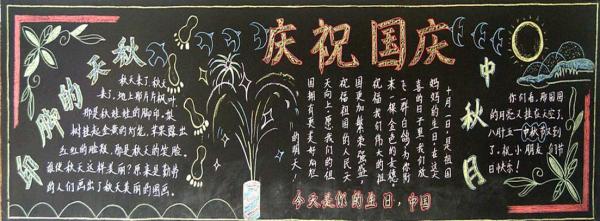 庆祝国庆
秋天的脚印
秋天来了,秋天
来了,地上那片片枫叶,
那是秋娃娃的脚印,梨
树挂起金黄的灯笼,苹果露出
红红的脸颊,那是秋天的笑脸。
谁使秋天这样美丽?原来是勤劳
的人们画出了秋天美丽的图画。
十月一日,是祖国
妈妈的生日,在这欢
喜的日子里我们放
飞一群白鸽,为你捎
来一棵金色的麦穗
祝福我们伟大的祖
国更加繁荣富强
祝福祖国的人民安
天向上,愿我们的祖
国拥有更美好灿烂
的明天!
今天是你的生日,中国
中秋月
你们看,那圆圆
的月亮又挂在天空了,
八月十五——中秋节又到
了,祝小朋友们节
日快乐!